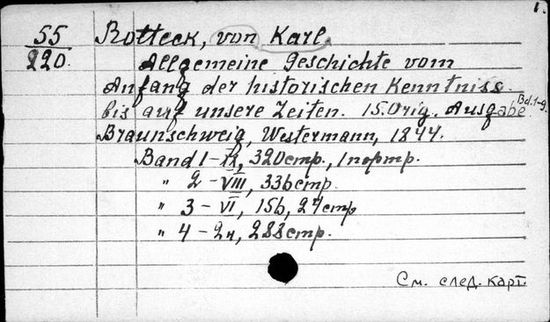 1.
55 Rotteck, von Karl.
220. Allgemeine Geschichte vom
Anfang der historischen Kenntniss
bis auf unsere Zeiten. 15. Orig. Ausgabe Bd. 1-9
Braunschweig, Westermann, 1844.
Band 1-IX, 320стр., 1портр.
" 2-VIII, 336стр.
" 3-VI, 156, 27стр
" 4-2н, 288стр.
См. след. карт.